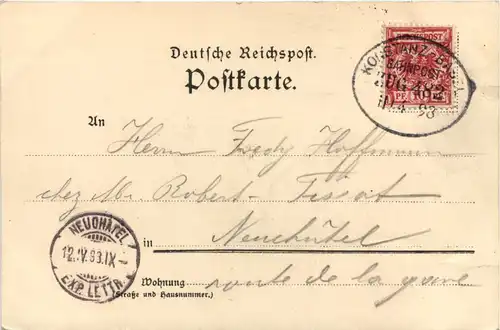 Deutsche Reichspost.
Postkarte.
REICHSPOST
KONSTANZ-BASEL
BAHNPOST
ZUG 482
An
Herrn Fredy Hoffmann
chez Mr. Robert-Tissot
in Neuchâtel
Wohnung route de la gare
(Straße und Hausnummer.)
NEUCHÂTEL
12.IV.93.IX
EXP. LETTR.